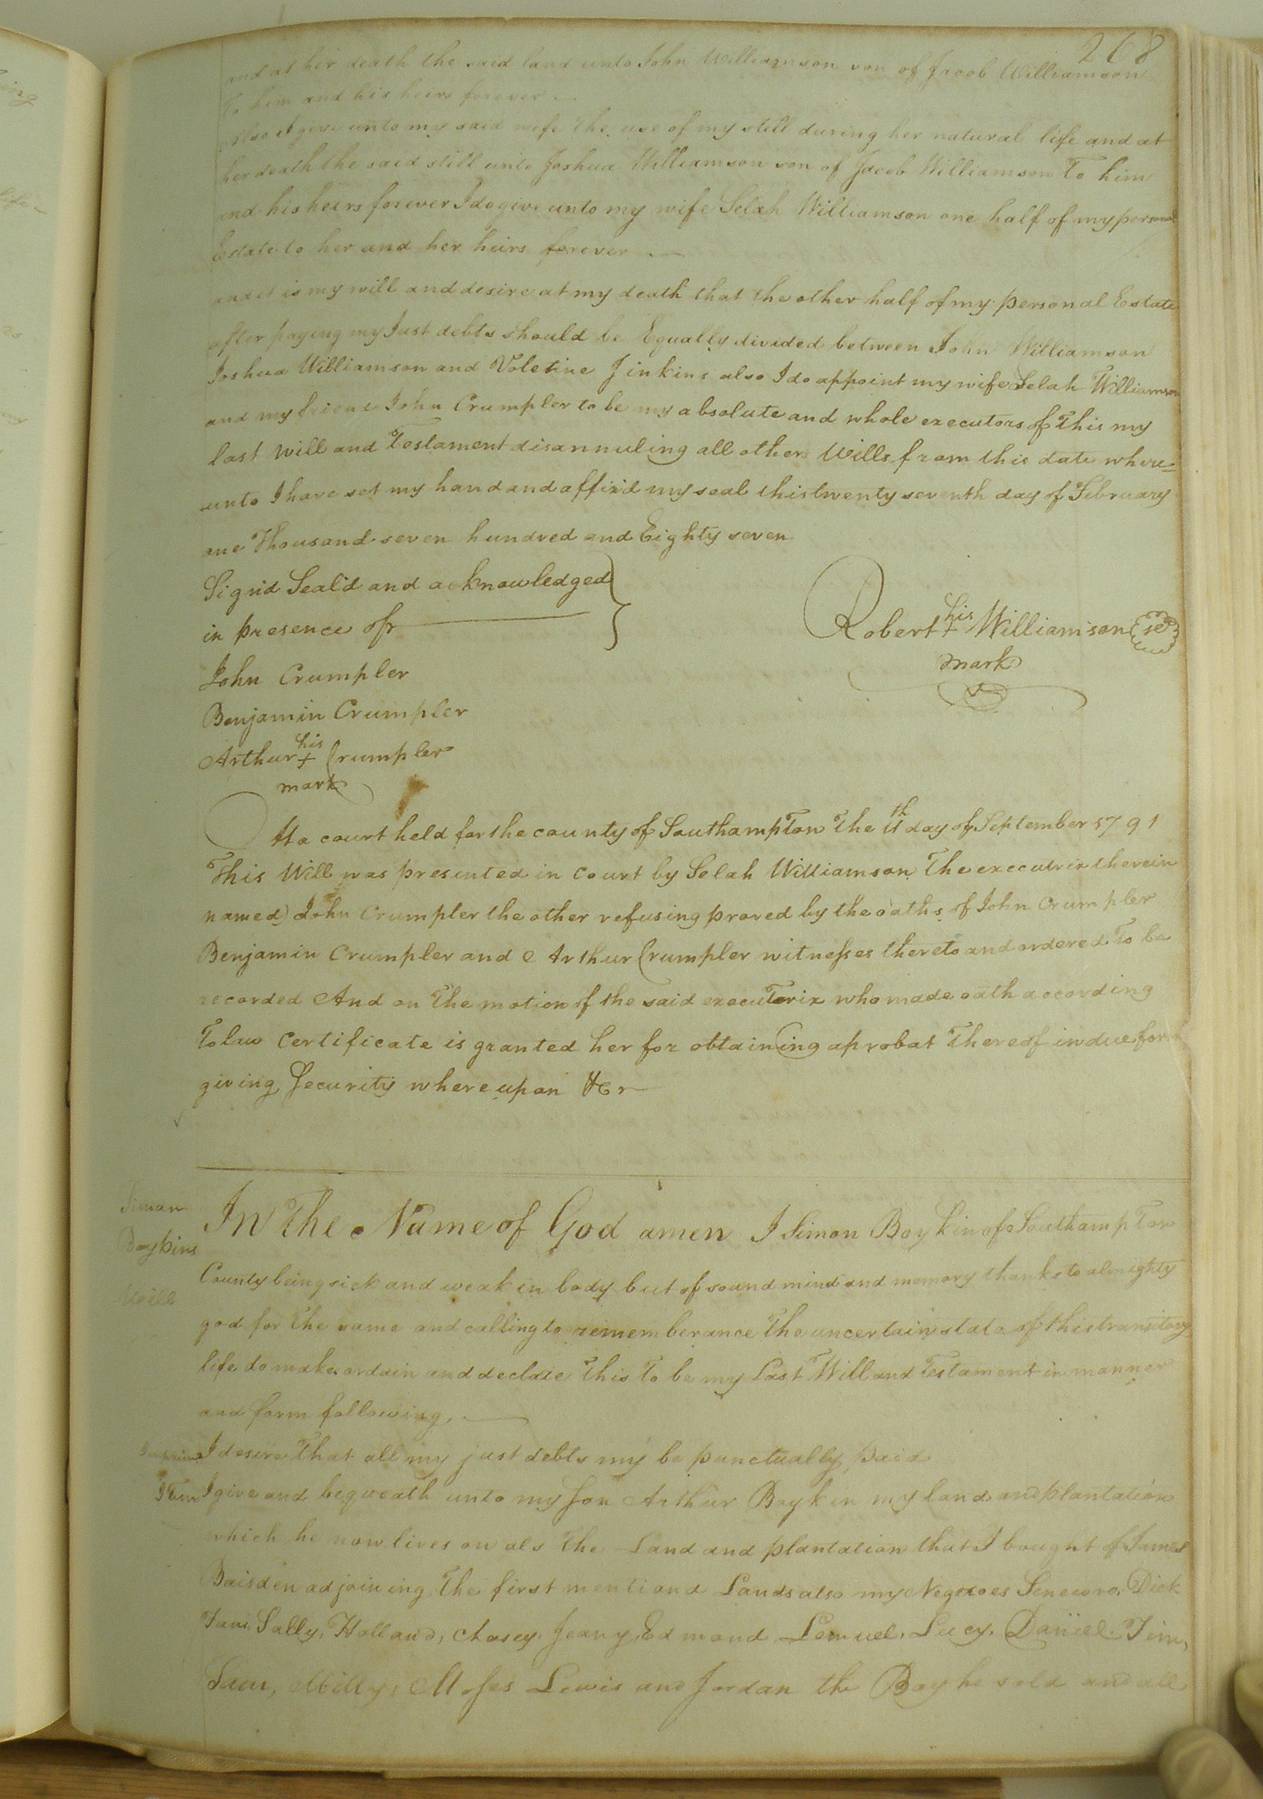 268
and at her death the said land unto John Williamson son of Jacob Williamson
To him and his heirs forever
Also I give unto my said wife the use of my still during her natural life and at
her death the said still unto Joshua Williamson son of Jacob Williamson To him
and his heirs forever I do give unto my wife Selah Williamson one half of my personal
Estate to her and her heirs forever
and it is my will and desire at my death that the other half of my personal Estate
after paying my Just debts should be Equally divided between John Williamson
Joshua Williamson and Voletine Jinkins also I do appoint my wife Selah Williamson
and my friend John Crumpler to be my absolute and whole executors of This my
last Will and Testament disannuling all other Wills from this date where=
unto I have set my hand and affixd my seal this twenty seventh day of February
one Thousand seven hundred and Eighty seven
Signd Seald and acknowledged
in presence off
Robert his + mark Williamson se
John Crumpler
Benjamin Crumpler
Arthur his + mark Crumpler
At a court held for the county of Southampton The th day of September 1791
This Will was presented in Court by Selah Williamson The executrix therein
named John Crumpler the other refusing proved by the oaths of John Crumpler
Benjamin Crumpler and Arthur Crumpler witnesses thereto and ordered To be
recorded And on The motion of the said executerix who made oath according
To law Certificate is granted her for obtaining a probat Thereof in due form
giving Security where upon &Cr
Simon
Boykins
Will
In The Name of God amen I Simon Boykin of Southampton
County being sick and weak in body but of sound mind and memory thanks to almighty
god for The same and calling to rememberance The uncertain state of this transitory
life do make ordain and declare This To be my Last Will and Testament in manner
and form following
I desire That all my just debts my be punctually paid
Item I give and beqweath unto my Son Arthur Boykin my land and plantation
which he now lives on als The Land and plantation that I bought of James
Baisden adjoining The first mentiond Lands also my Negroes Dick
Sally, Holland, Chasey, Jeany, Edmond Lemuel, Lucy, Daniel
Milly, Moses Lewis and Jordan the Boy he sold and all